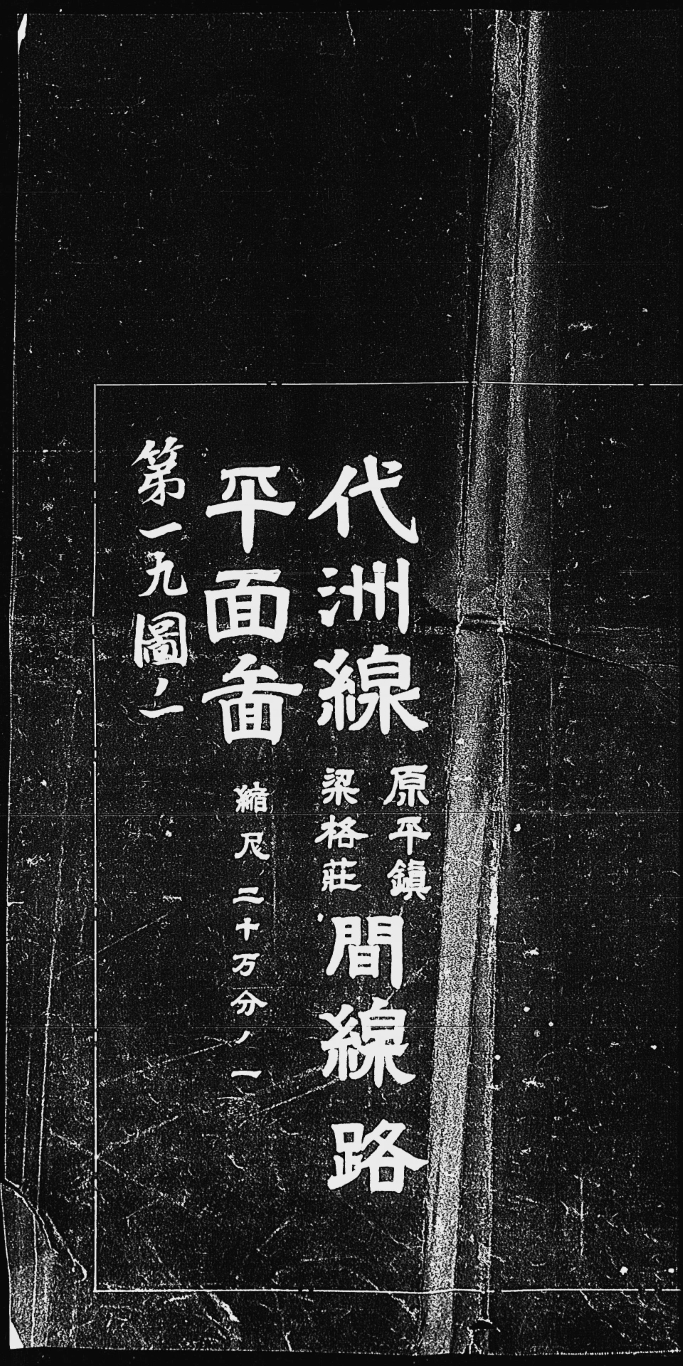 代洲線原平鎮梁格莊間線路
平面畚
縮尺 二十万分ノ一
第一九圖ノ一